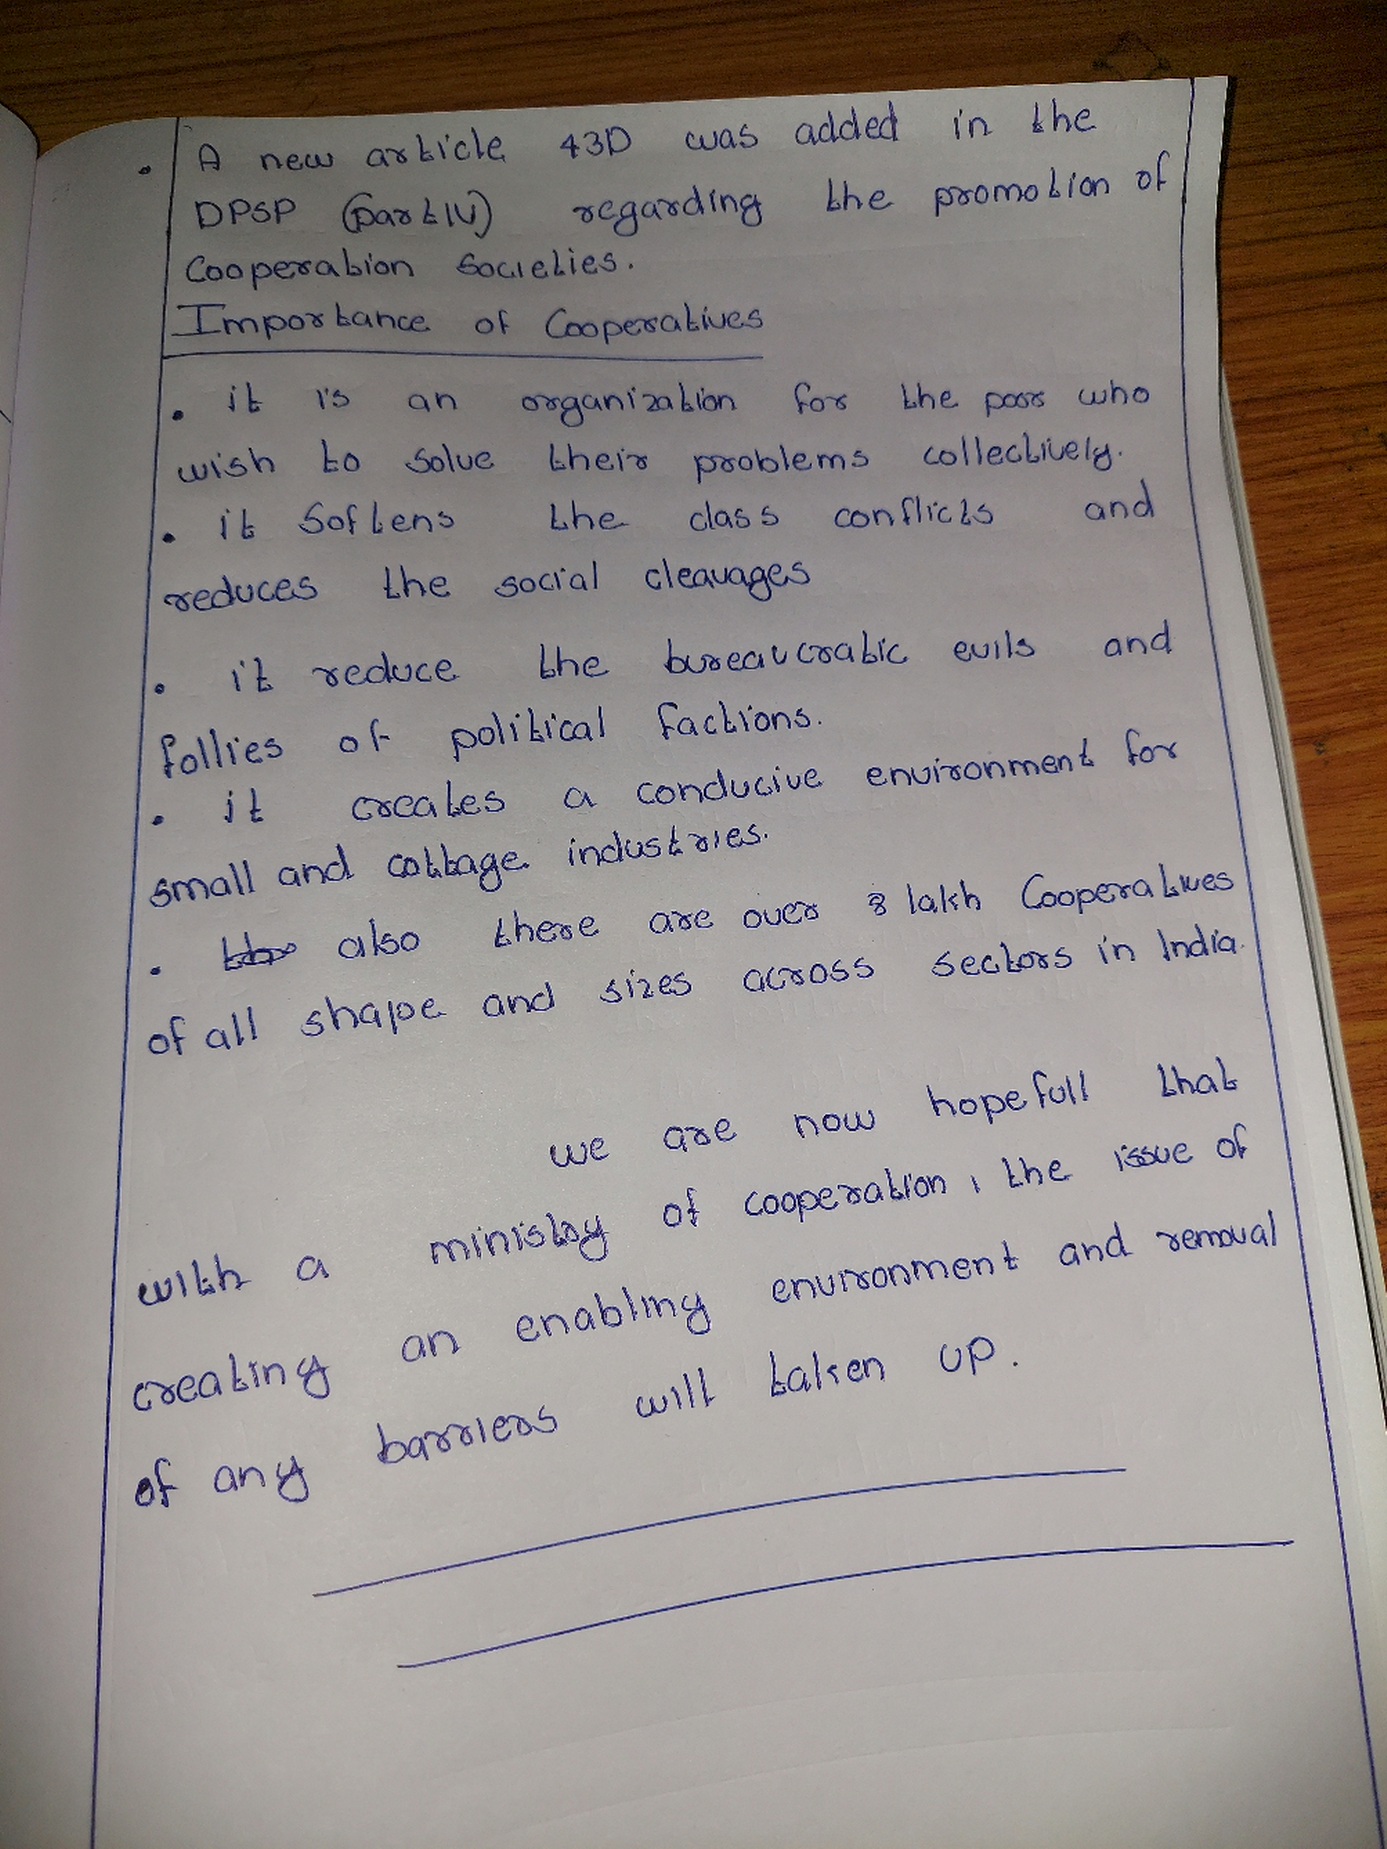 • A new article 43D was added in the
DPSP (part IV) regarding the promotion of
Cooperation Societies.
Importance of Cooperatives
• it is an organization for the poor who
wish to solve their problems collectively.
• it Softens the class conflicts and
reduces the social cleavages
• it reduce the bureaucratic evils and
follies of political factions.
• it creates a conducive environment for
small and cottage industries.
• also there are over 8 lakh Cooperatives
of all shape and sizes across sectors in India.
we are now hopefull that
with a ministry of cooperation, the issue of
creating an enabling environment and removal
of any barriers will taken up.